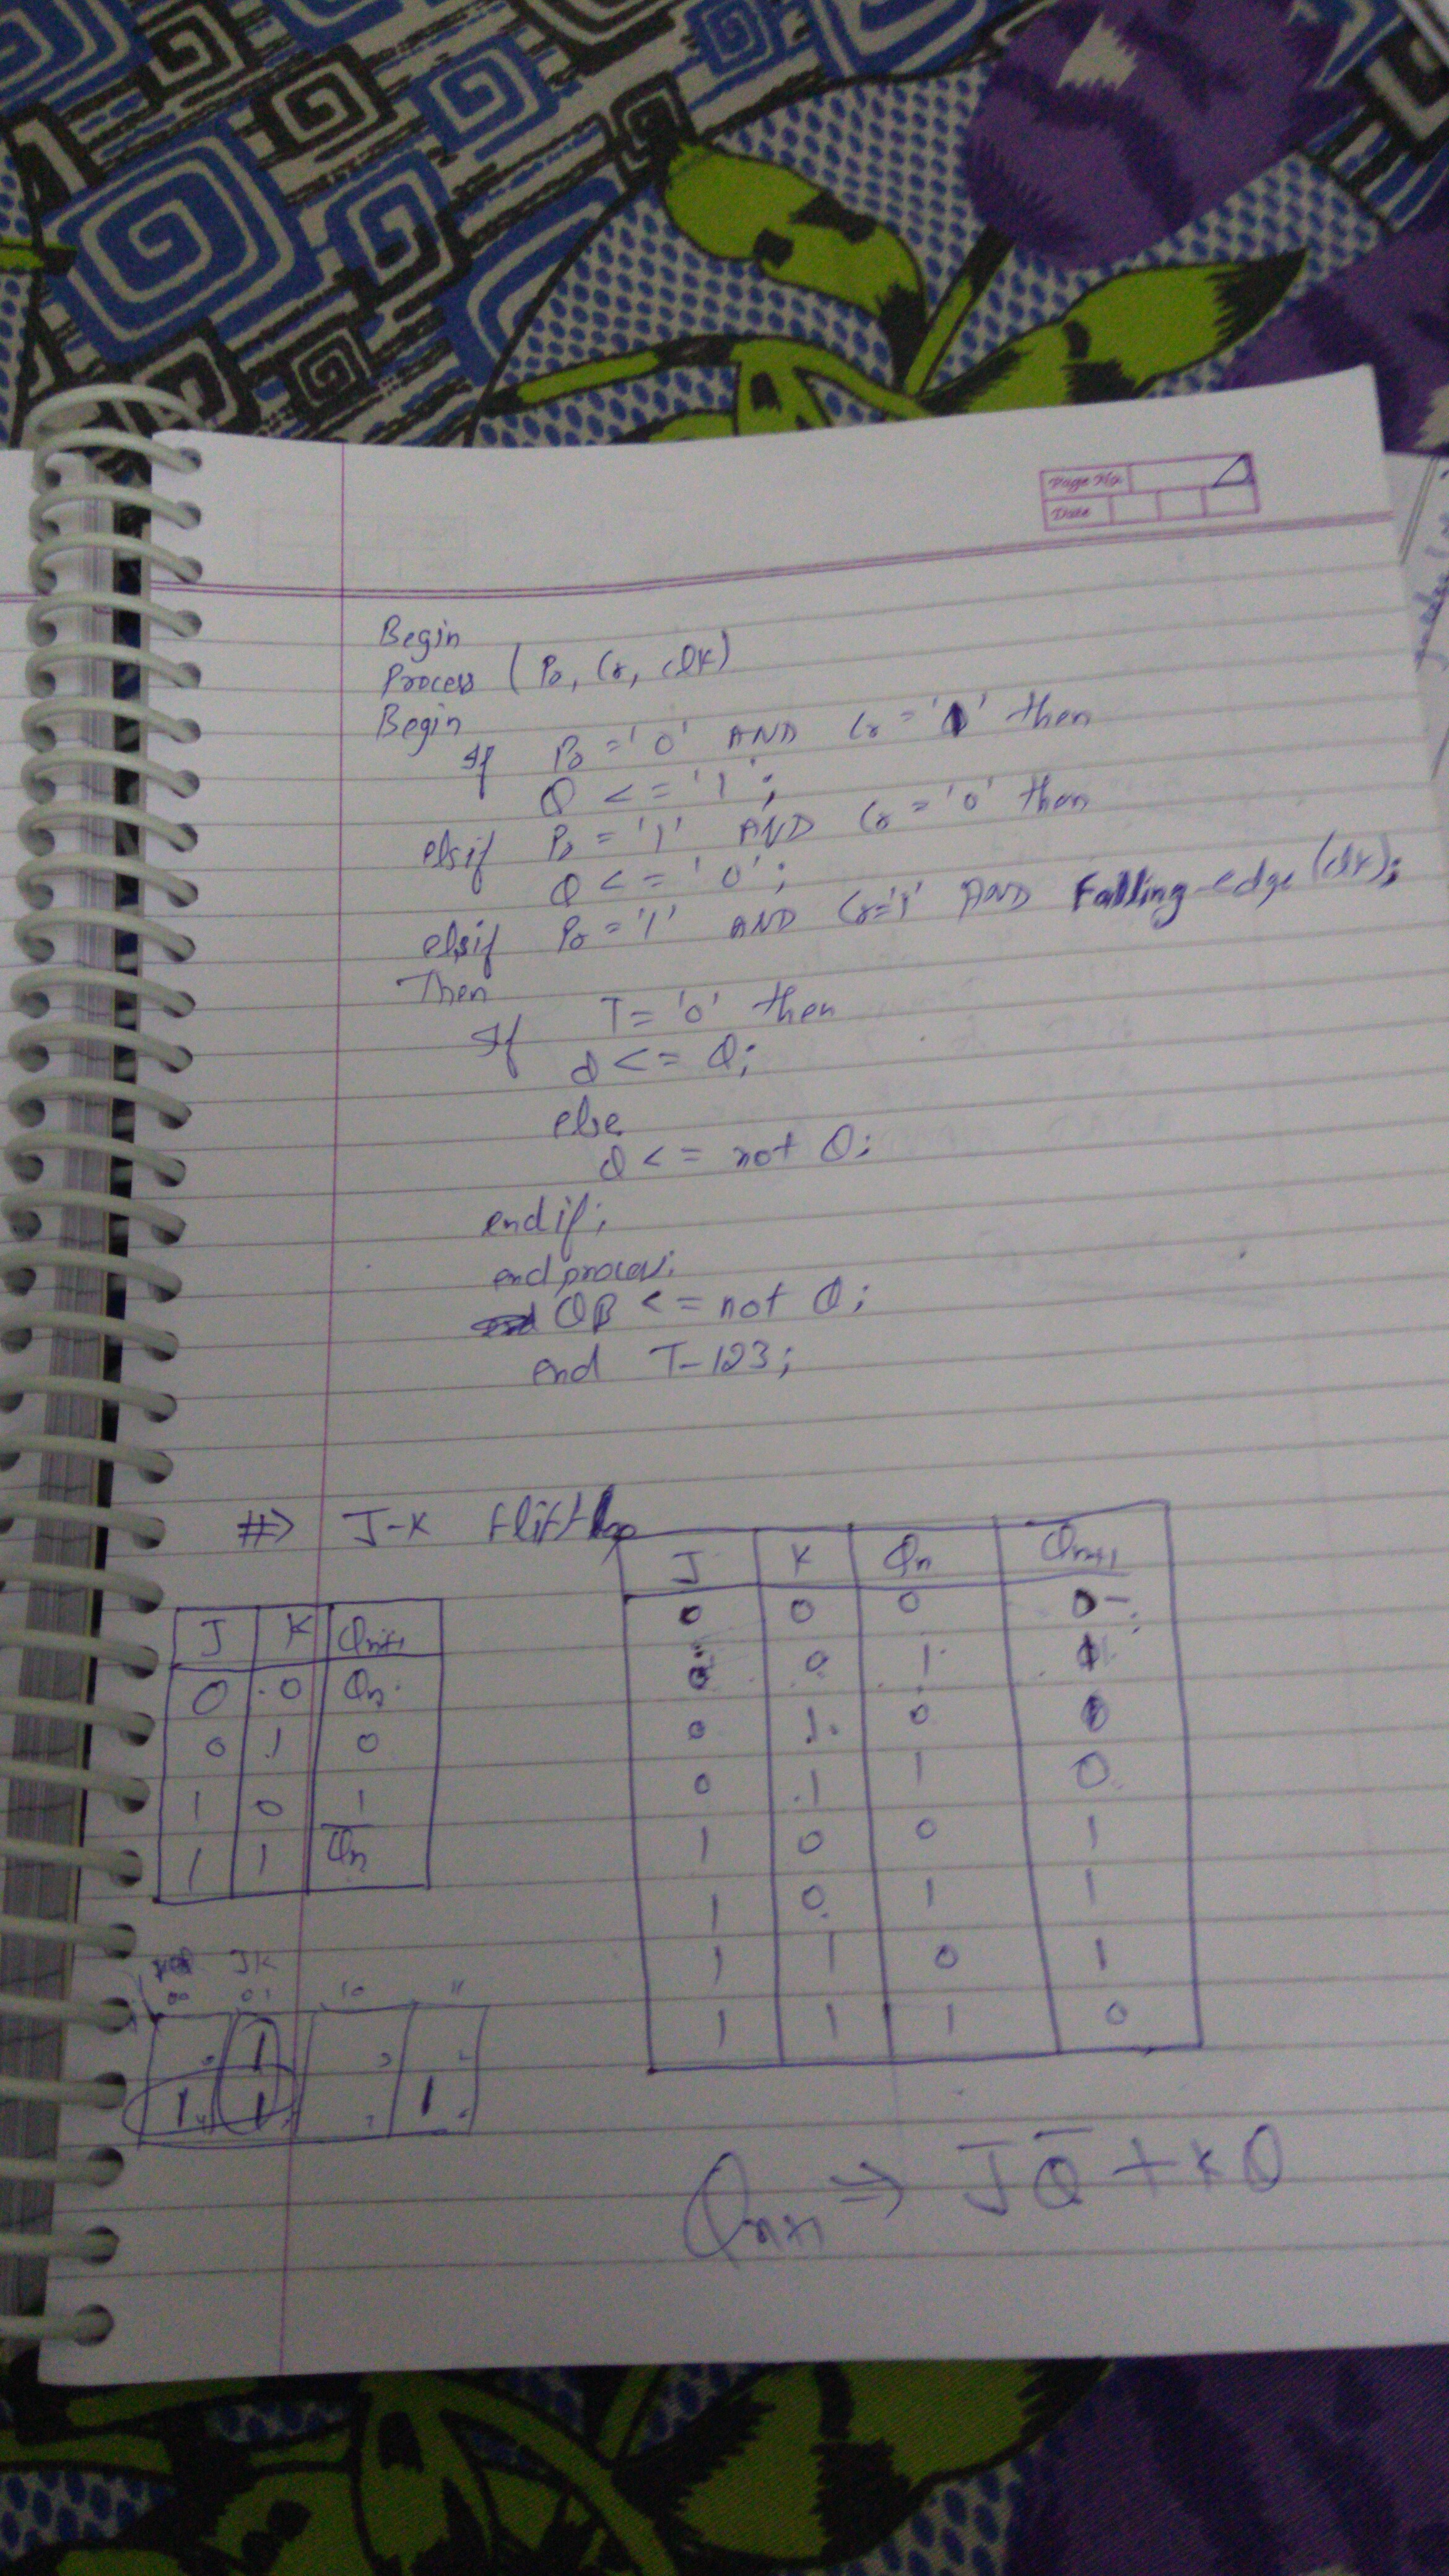 Page No.
Date
Begin
Process (Pr, Cr, clk)
Begin
If Pr = '0' AND Cr = '1' then
Q <= '1';
elsif Pr = '1' AND Cr = '0' then
Q <= '0';
elsif Pr = '1' AND Cr='1' AND Falling-edge (clk);
Then
If T = '0' then
Q <= Q;
else
Q <= not Q;
end if;
end process;
QB <= not Q;
end T-123;
#⇒ J-K
J K Qn Qn+1
0 0 0 0
0 0 1 1
0 1 0 0
0 1 1 0
1 0 0 1
1 0 1 1
1 1 0 1
1 1 1 0
J K Qn+1
0 0 Qn
0 1 0
1 0 1
1 1 Q̅n
JK
00 01 10 11
1
1 1 1
Qn+1 ⇒ JQ̅ + KQ